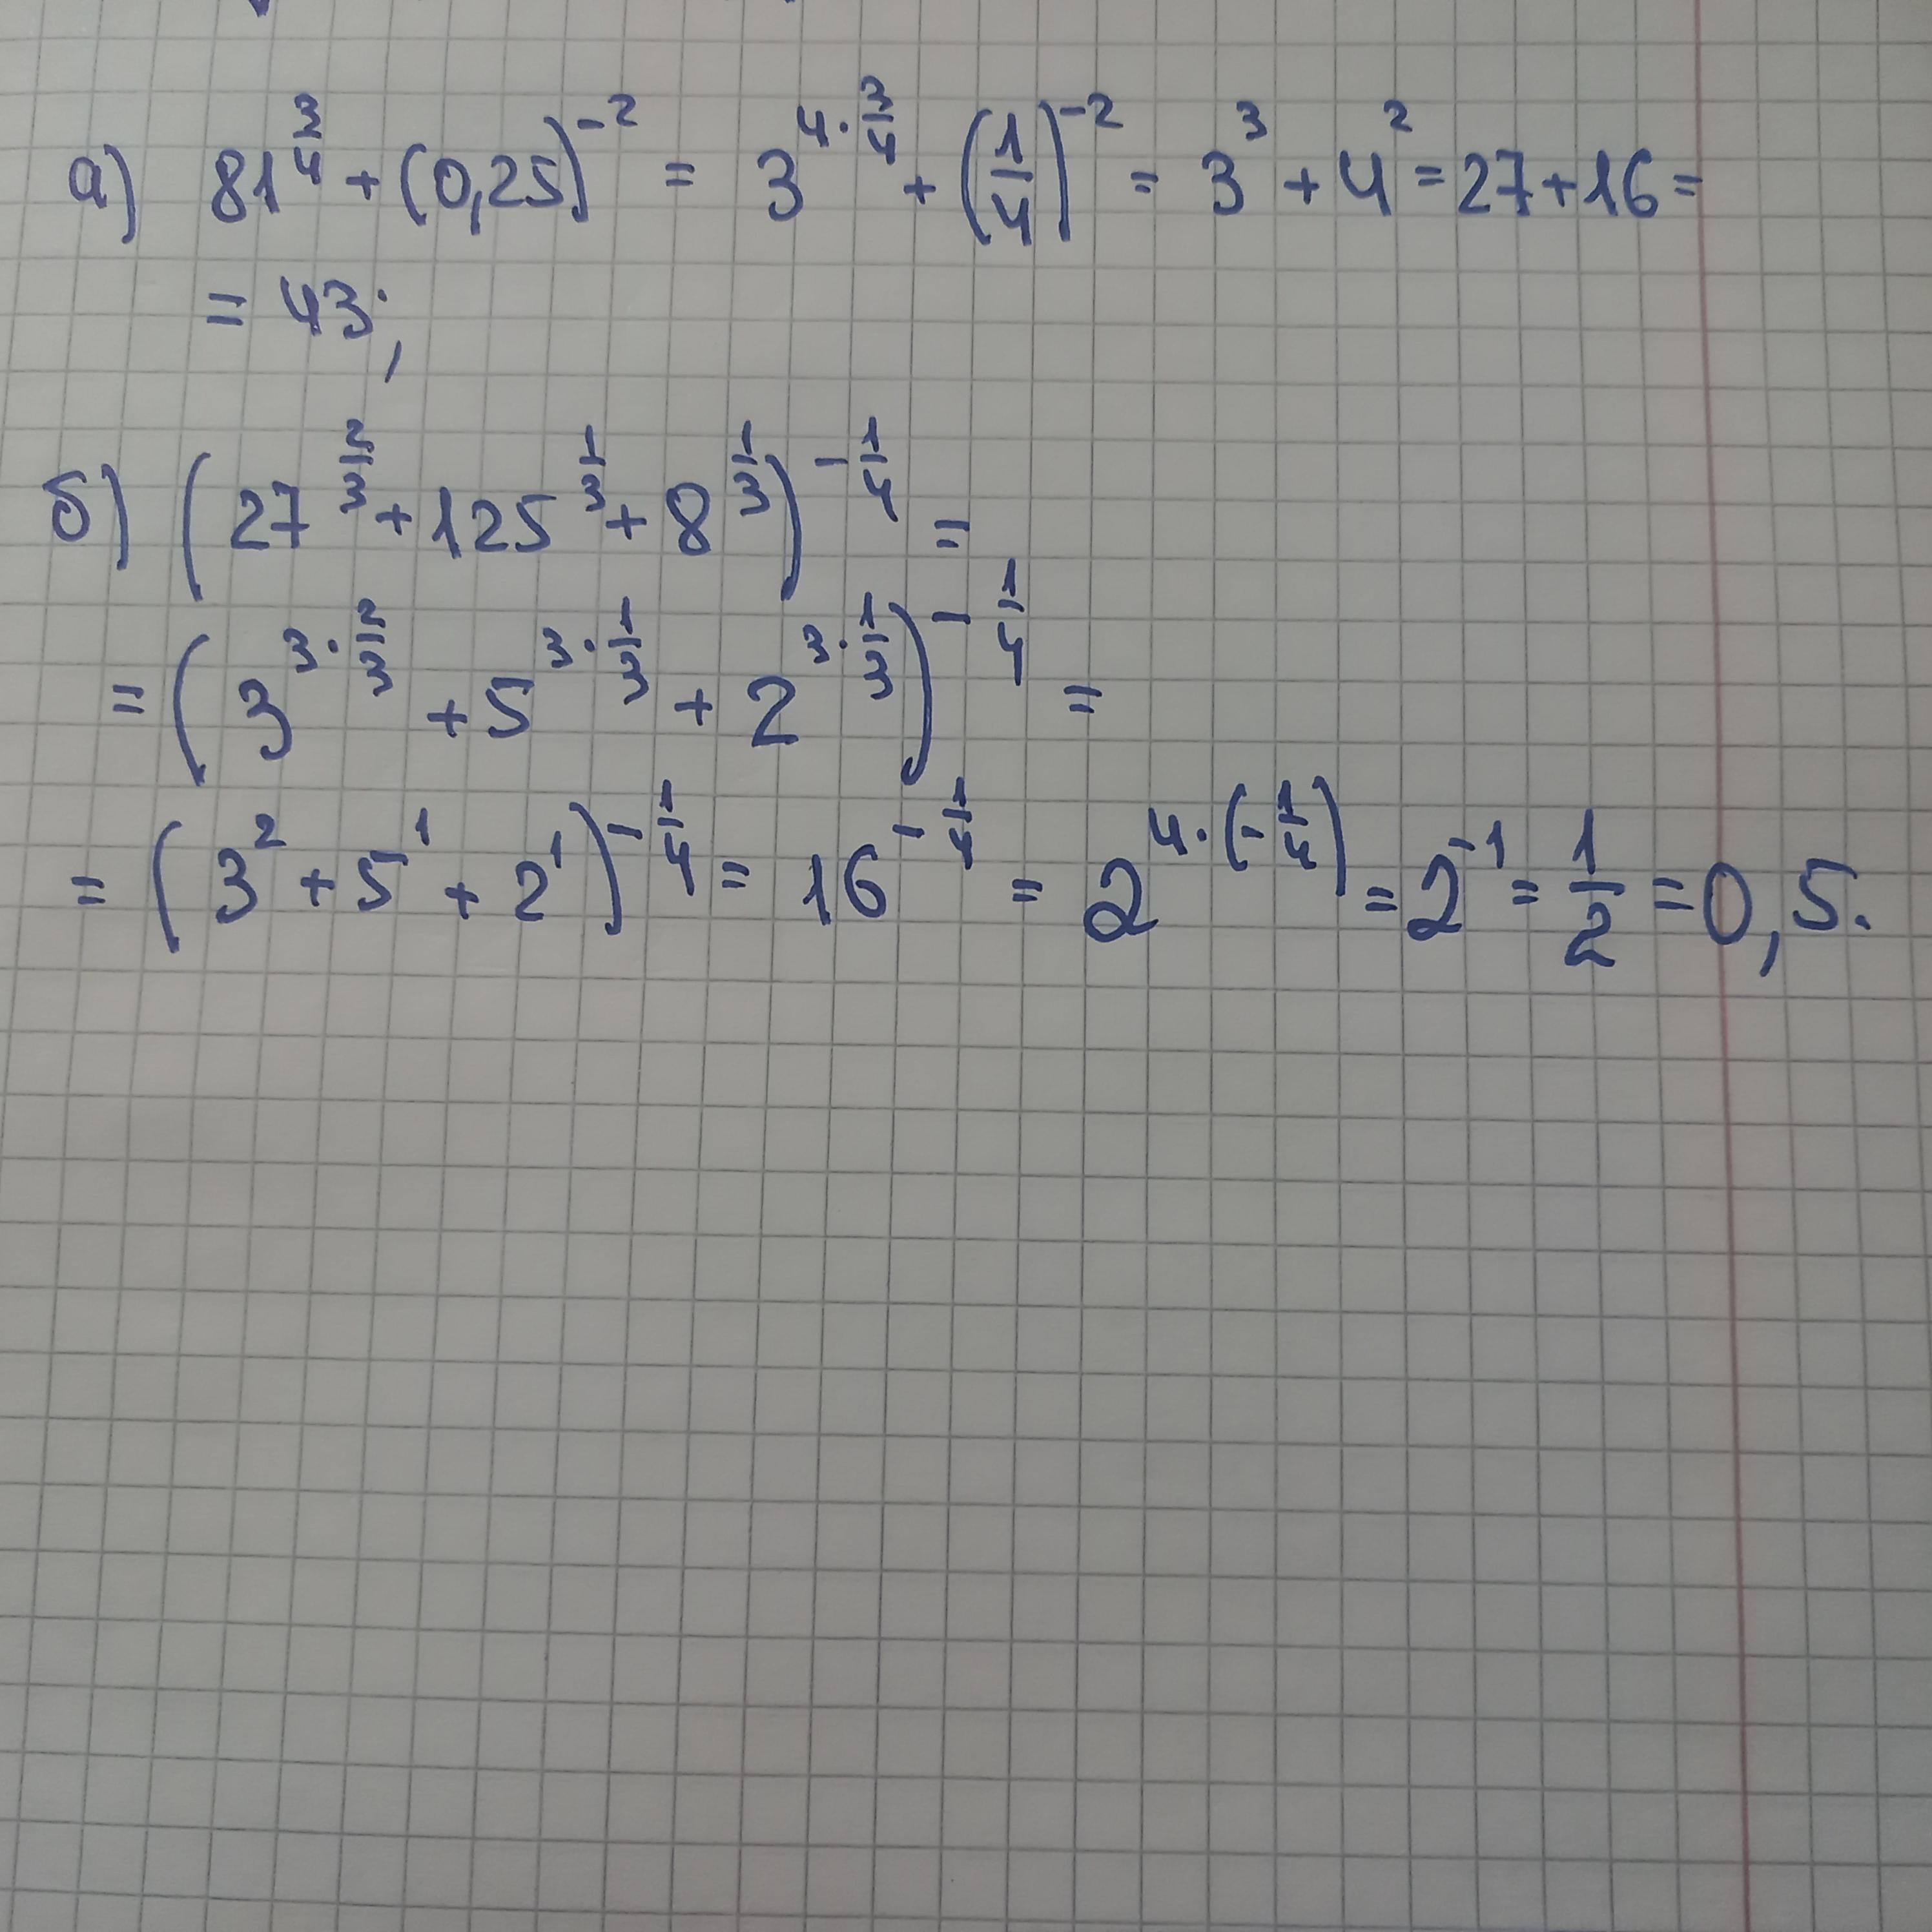 а) 81^(3/4) + (0,25)^(-2) = 3^(4·3/4) + (1/4)^(-2) = 3^3 + 4^2 = 27 + 16 =
= 43;
б) (27^(2/3) + 125^(1/3) + 8^(1/3))^(-1/4) =
= (3^(3·2/3) + 5^(3·1/3) + 2^(3·1/3))^(-1/4) =
= (3^2 + 5^1 + 2^1)^(-1/4) = 16^(-1/4) = 2^(4·(-1/4)) = 2^(-1) = 1/2 = 0,5.